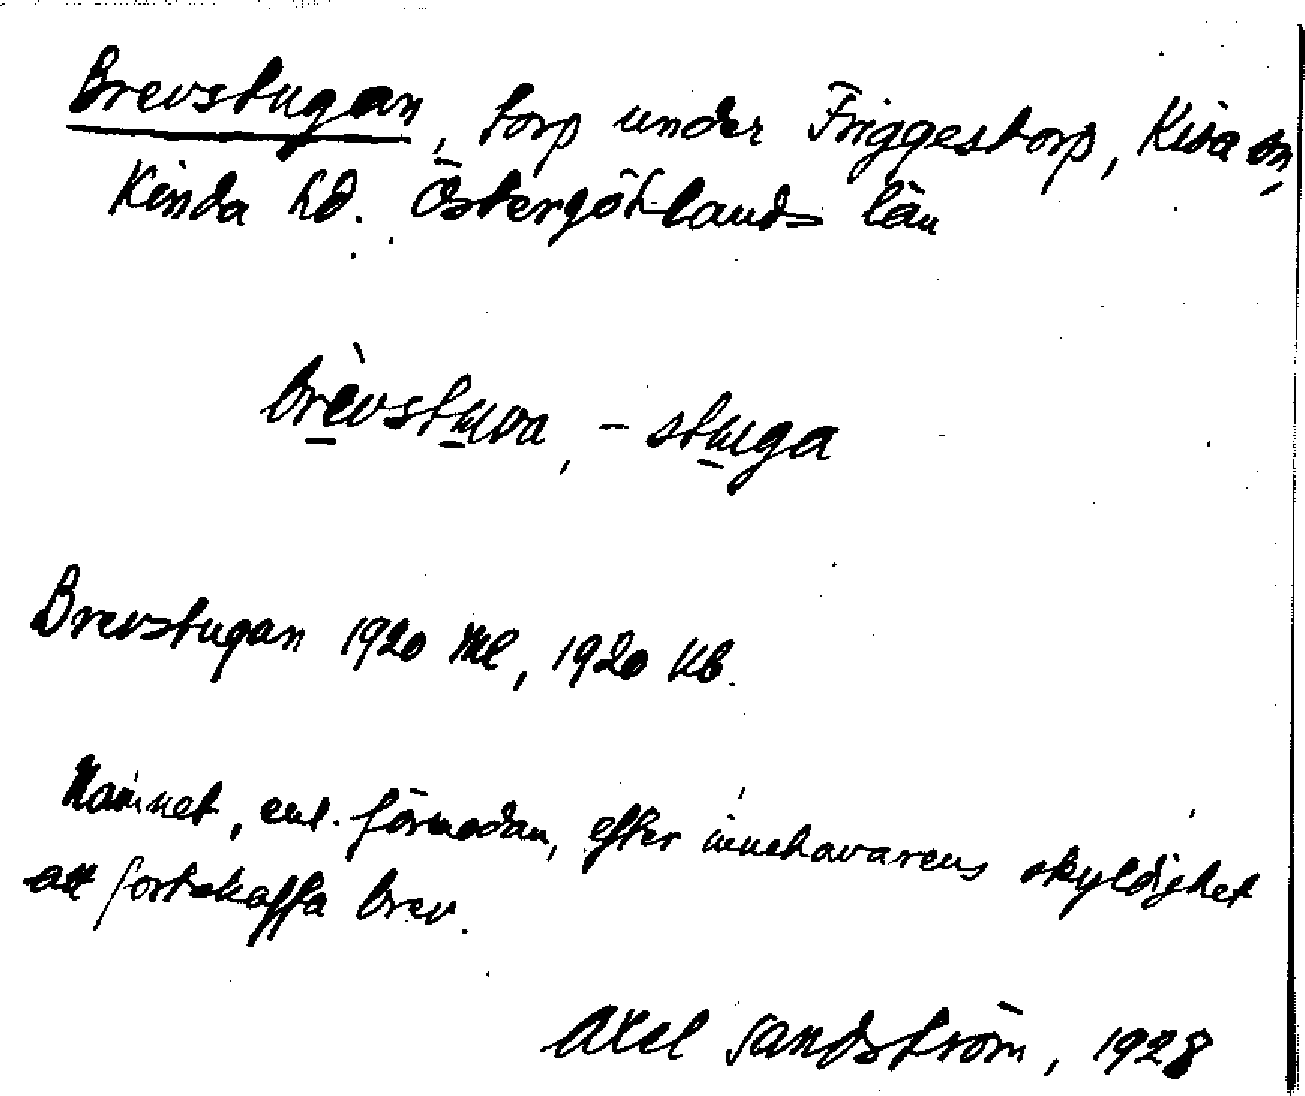 Brevstugan, torp under Friggestorp, Kisa sn,
Kinda hd. Östergötlands län
brèvstuva, -stuga
Brevstugan 1920 Ml, 1920 Kb.
Namnet, enl. förmodan, efter innehavarens skyldighet
att fortskaffa brev.
Axel Sandström, 1928